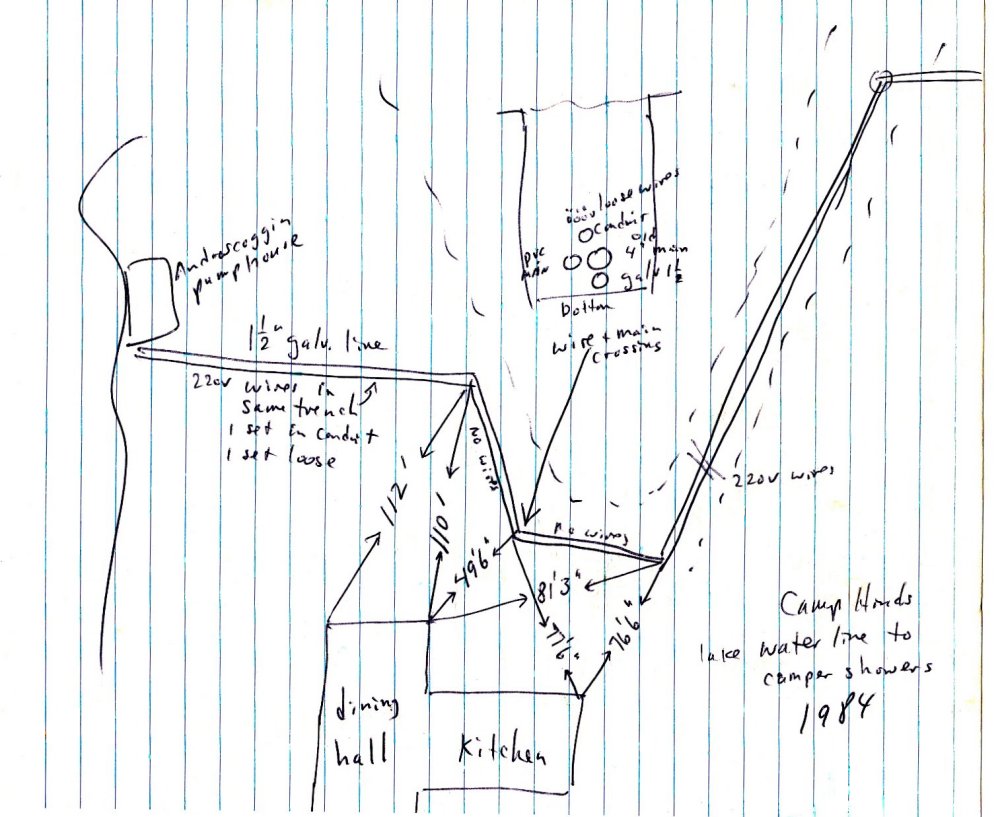 loose wires
Conduit
old
4" main
PVC
main
galv 1½
bottom
Androscoggin
pumphouse
1½" galv. line
220v wires in
same trench
1 set in conduit
1 set loose
wire + main
crossing
No wires
No wires
220v wires
112'
110'
49'6"
81'3"
77'6"
76'6"
Camp Hinds
lake water line to
camper showers
1984
dining
hall
Kitchen